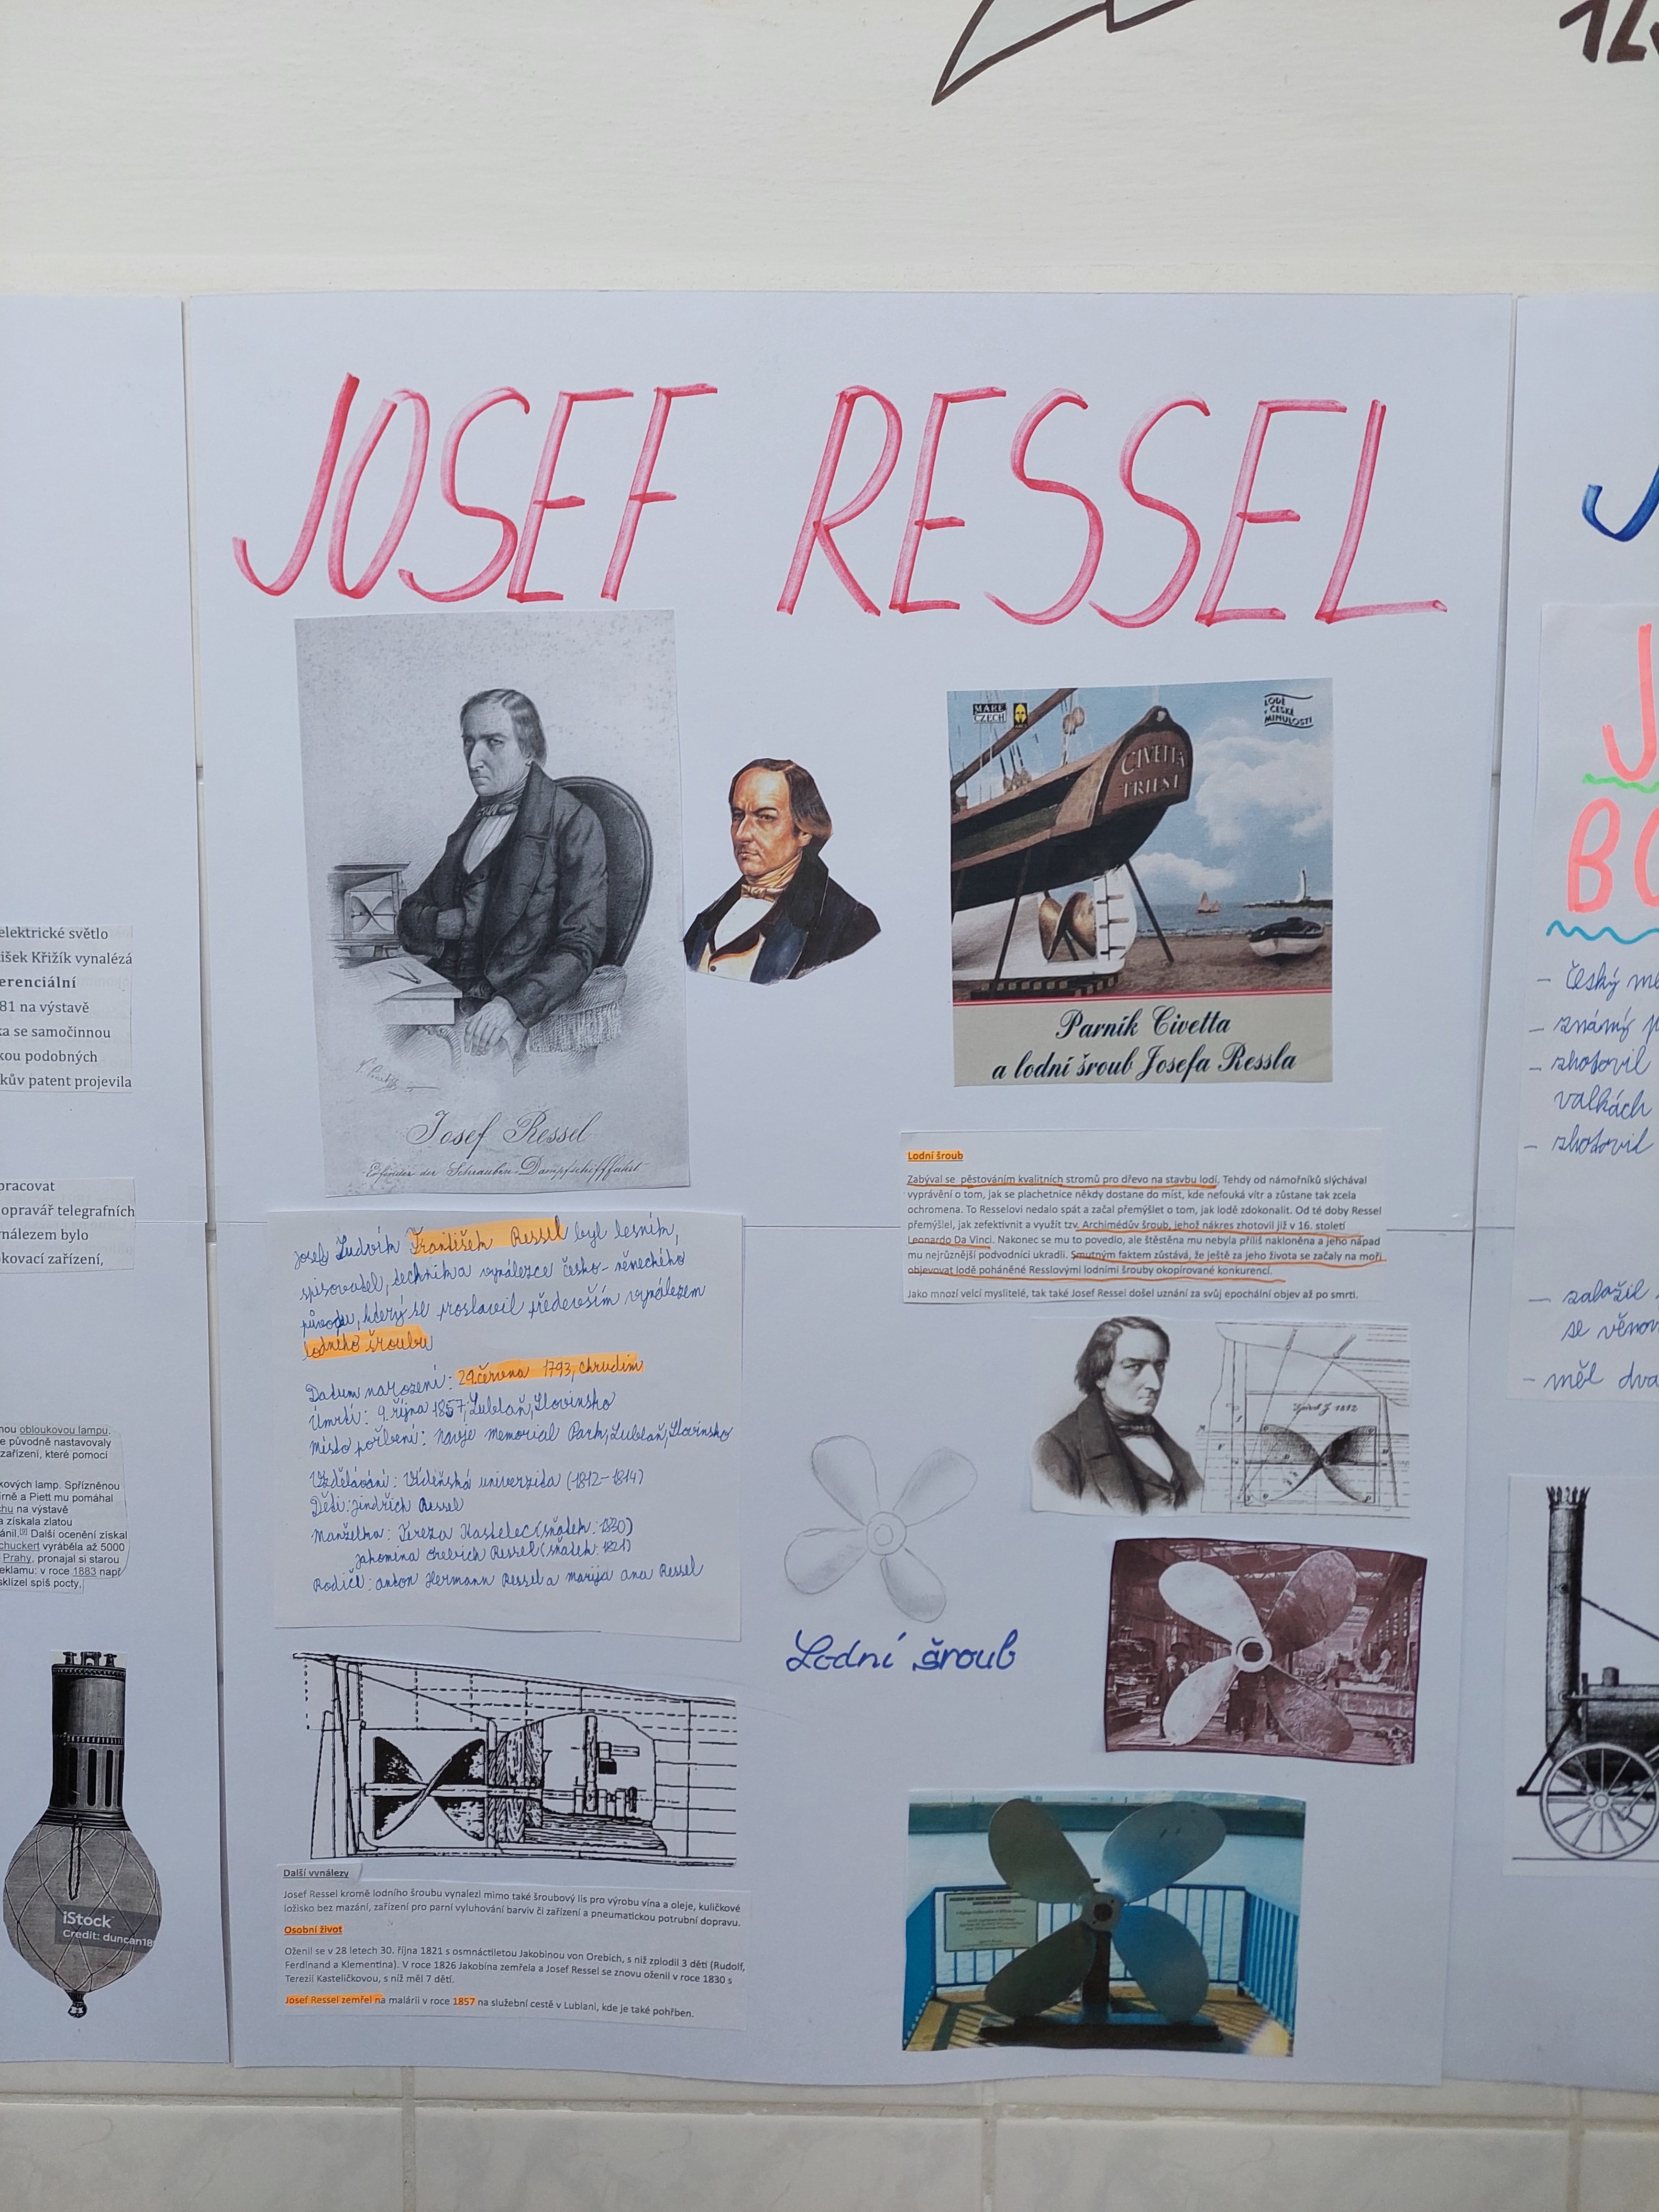 JOSEF RESSEL
MARE
CZECH
LODĚ
V ČESKÉ
MINULOSTI
CIVETTA
TRIEST
Parník Civetta
a lodní šroub Josefa Ressla
Josef Ressel
Erfinder der Schrauben-Dampfschifffahrt
Josef Ludvík František Ressel byl lesník,
spisovatel, technik a vynálezce česko-německého
původu, který se proslavil především vynálezem
lodního šroubu
Datum narození: 29. června 1793, Chrudim
Úmrtí: 9. října 1857, Lublaň, Slovinsko
Místo pořbení: Navje Memorial Park, Lublaň, Slovinsko
Vzdělávání: Vídeňská univerzita (1812-1814)
Děti: Jindřich Ressel
Manželka: Tereza Kastelec (sňatek: 1830)
Jakomina Orebich Ressel (sňatek: 1821)
Rodiče: Anton Hermann Ressel a Marija Ana Ressel
Další vynálezy
Josef Ressel kromě lodního šroubu vynalezl mimo také šroubový lis pro výrobu vína a oleje, kuličkové
ložisko bez mazání, zařízení pro parní vyluhování barviv či zařízení a pneumatickou potrubní dopravu.
Osobní život
Oženil se v 28 letech 30. října 1821 s osmnáctiletou Jakobinou von Orebich, s níž zplodil 3 děti (Rudolf,
Ferdinand a Klementina). V roce 1826 Jakobína zemřela a Josef Ressel se znovu oženil v roce 1830 s
Terezií Kasteličkovou, s níž měl 7 dětí.
Josef Ressel zemřel na malárii v roce 1857 na služební cestě v Lublani, kde je také pohřben.
Lodní šroub
Zabýval se pěstováním kvalitních stromů pro dřevo na stavbu lodí. Tehdy od námořníků slýchával
vyprávění o tom, jak se plachetnice někdy dostane do míst, kde nefouká vítr a zůstane tak zcela
ochromena. To Resselovi nedalo spát a začal přemýšlet o tom, jak lodě zdokonalit. Od té doby Ressel
přemýšlel, jak zefektivnit a využít tzv. Archimédův šroub, jehož nákres zhotovil již v 16. století
Leonardo Da Vinci. Nakonec se mu to povedlo, ale štěstěna mu nebyla příliš nakloněna a jeho nápad
mu nejrůznější podvodníci ukradli. Smutným faktem zůstává, že ještě za jeho života se začaly na moři
objevovat lodě poháněné Resslovými lodními šrouby okopírované konkurencí.
Jako mnozí velcí myslitelé, tak také Josef Ressel došel uznání za svůj epochální objev až po smrti.
1812
Lodní šroub
elektrické světlo
išek Křižík vynalézá
erenciální
81 na výstavě
ka se samočinnou
kou podobných
kův patent projevila
pracovat
opravář telegrafních
nálezem bylo
okovací zařízení,
nou obloukovou lampu.
e původně nastavovaly
zařízení, které pomocí
kových lamp. Spřízněnou
írně a Piett mu pomáhal
chu na výstavě
a získala zlatou
ánil.[9] Další ocenění získal
chuckert vyráběla až 5000
Prahy, pronajal si starou
eklamu: v roce 1883 např
sklízel spíš pocty,
iStock
Credit: duncan18
J
J
BO
- český me
- známý p
- zhotovil
valkách
- zhotovil
- založil
se věnov
- měl dva